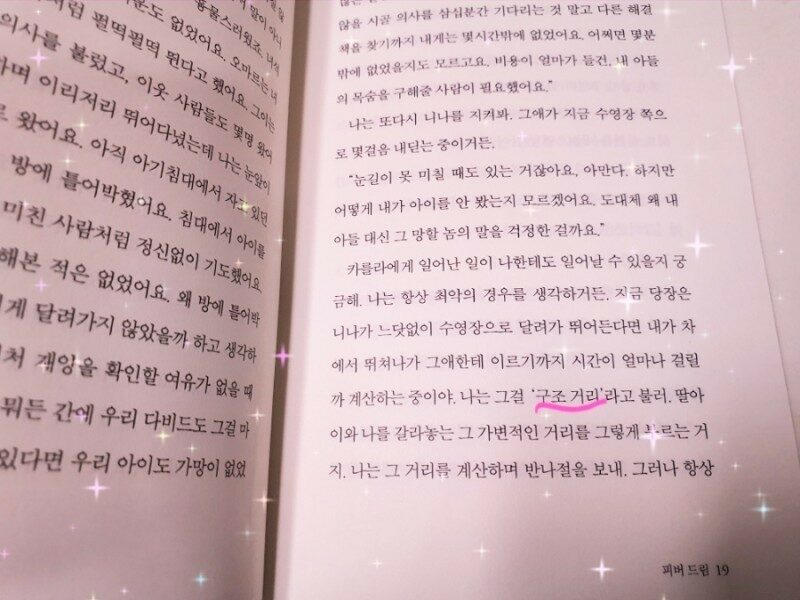 말이 아니
동물스러웠죠. 녀석
처럼 펄떡펄떡 뛴다고 했어요. 오마르는 내
의사를 불렀고, 이웃 사람들도 몇명 왔어
하며 이리저리 뛰어다녔는데 나는 눈앞이
로 왔어요. 아직 아기침대에서 자고 있던
방에 틀어박혔어요. 침대에서 아이를
미친 사람처럼 정신없이 기도했어요.
해본 적은 없었어요. 왜 방에 틀어박
게 달려가지 않았을까 하고 생각하
처 재앙을 확인할 여유가 없을 때
뭐든 간에 우리 다비드도 그걸 마
있다면 우리 아이도 가망이 없었
않을 시골 의사를 삼십분간 기다리는 것 말고 다른 해결
책을 찾기까지 내게는 몇시간밖에 없었어요. 어쩌면 몇분
밖에 없었을지도 모르고요. 비용이 얼마가 들건, 내 아들
의 목숨을 구해줄 사람이 필요했어요.”
나는 또다시 니나를 지켜봐. 그애가 지금 수영장 쪽으
로 몇걸음 내딛는 중이거든.
“눈길이 못 미칠 때도 있는 거잖아요, 아만다. 하지만
어떻게 내가 아이를 안 봤는지 모르겠어요. 도대체 왜 내
아들 대신 그 망할 놈의 말을 걱정한 걸까요.”
카를라에게 일어난 일이 나한테도 일어날 수 있을지 궁
금해. 나는 항상 최악의 경우를 생각하거든. 지금 당장은
니나가 느닷없이 수영장으로 달려가 뛰어든다면 내가 차
에서 뛰쳐나가 그애한테 이르기까지 시간이 얼마나 걸릴
까 계산하는 중이야. 나는 그걸 ‘구조 거리’라고 불러. 딸아
이와 나를 갈라놓는 그 가변적인 거리를 그렇게 부르는 거
지. 나는 그 거리를 계산하며 반나절을 보내. 그러나 항상
피버 드림 19